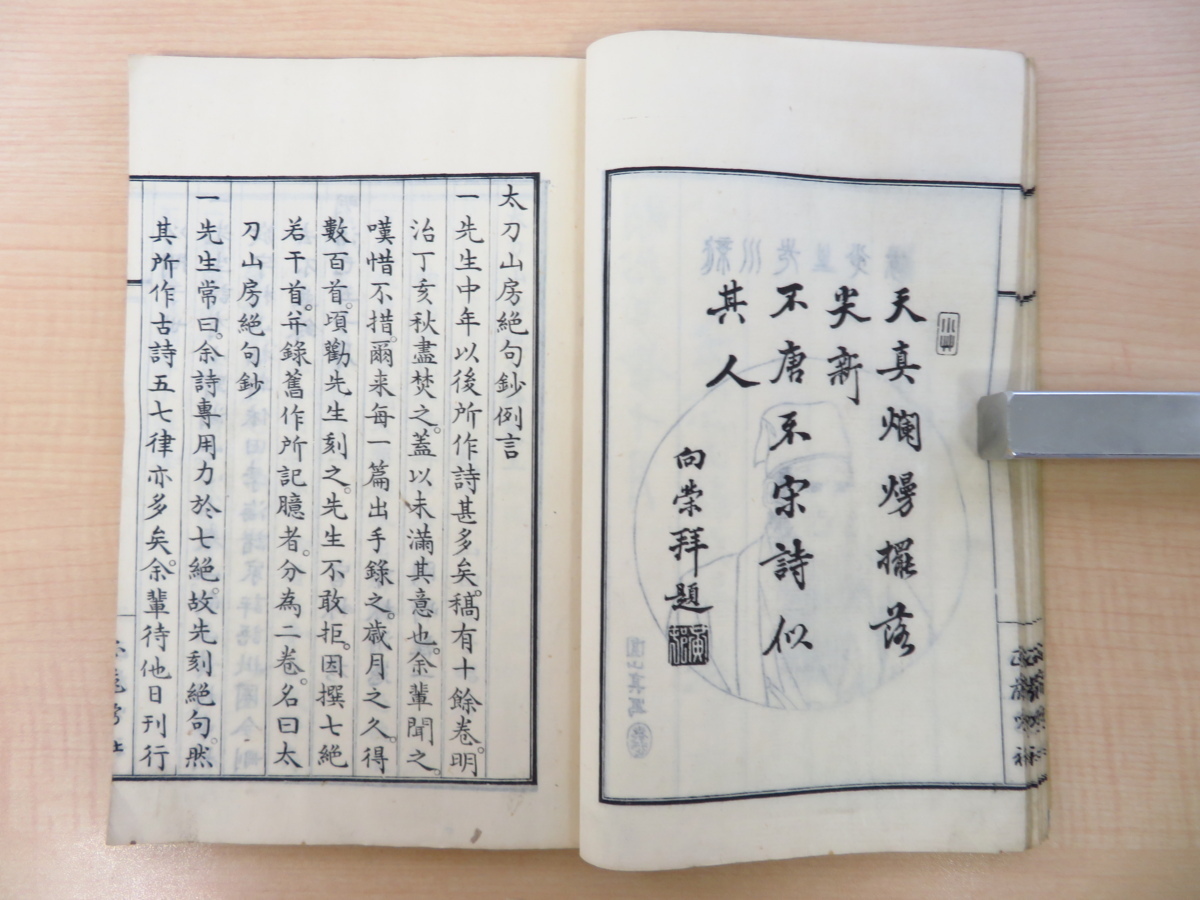 天真爛熳擺落
尖新
不唐不宋詩似
其人
向榮拜題
太刀山房絶句鈔例言
一先生中年以後所作詩甚多矣。稿有十餘卷。明
治丁亥秋盡焚之。蓋以未滿其意也。余輩聞之。
嘆惜不措。爾来每一篇出手錄之。歲月之久。得
數百首。頃勸先生刻之。先生不敢拒。因撰七絶
若干首。并錄舊作所記臆者。分為二卷。名曰太
刀山房絶句鈔
一先生常曰。余詩專用力於七絶。故先刻絶句。然
其所作古詩五七律亦多矣。余輩待他日刊行